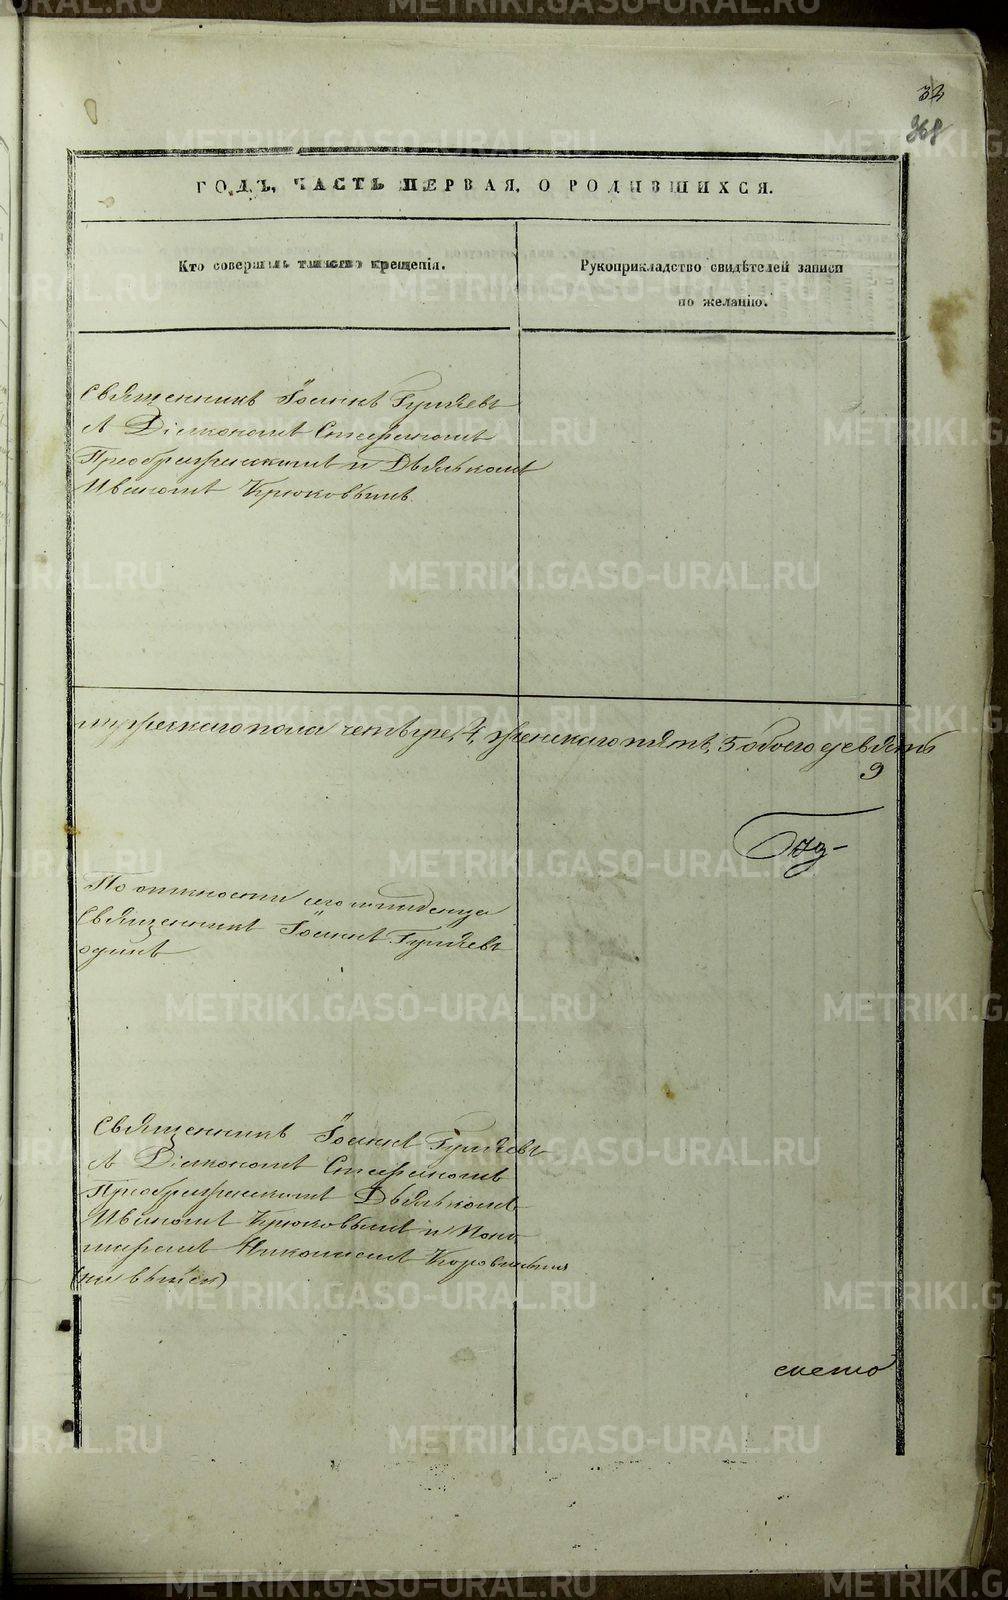 32
368
ГОДЪ, ЧАСТЬ ПЕРВАЯ, О РОДИВШИХСЯ.
Кто совершалъ таинство крещенія.
Рукоприкладство свидѣтелей записи
по желанію.
Священникъ Іоаннъ Гуляевъ
с Діакономъ Стефаномъ
Преображенскимъ и Дьячкомъ
Иваномъ Крюковымъ.
мужескаго пола четыре, 4, женскаго пять, 5 обоего девять
9
По опасности младенца
Священникъ Іоаннъ Гуляевъ
одинъ
Священникъ Іоаннъ Гуляевъ
с Діакономъ Стефаномъ
Преображенскимъ Дьячкомъ
Иваномъ Крюковымъ и Поно
маремъ Николаемъ
METRIKI.GASO-URAL.RU